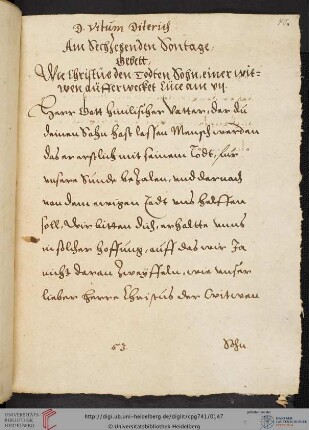 D. Vitum Diterich
Am Sechzehenden Sontage,
Gebett.
Wie Christus den Todten Sohn, einer wit-
wen aufferwecket Luce am vij
Herr Gott himlischer Vatter, der du
deinen Sohn hast lassen Mensch werden
das er erstlich mit seinem Todt, für
unsere Sunde bezalen, und darnach
von dem ewigen Todt uns helffen
soll, Wir bitten dich, erhaltte unns
in solcher hoffnung, auff das wir Ja
nicht daran Zweyffeln, wie unser
lieber Herre Christus der Witwen
63.
Sohn
UNIVERSITÄTS-
BIBLIOTHEK
HEIDELBERG
http://digi.ub.uni-heidelberg.de/diglit/cpg741/0147
© Universitätsbibliothek Heidelberg